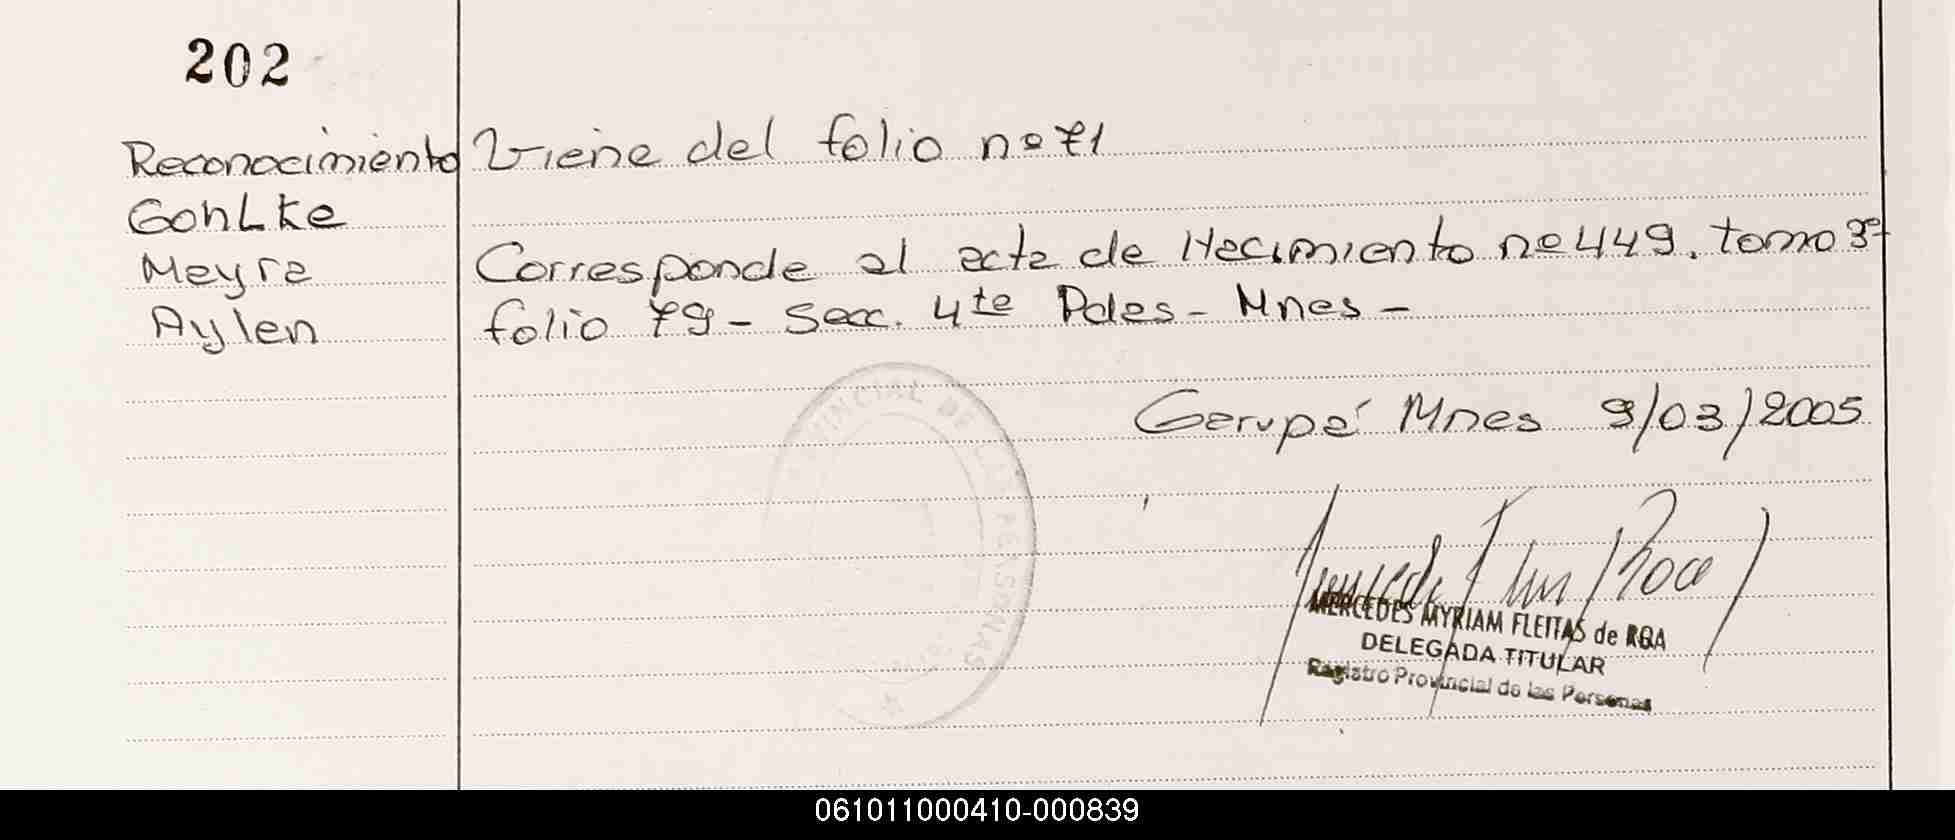 202
Reconocimiento
Gohlke
Meyra
Aylen
Viene del folio nº 71
Corresponde al acta de Nacimiento nº 449. tomo 3º
folio 79 - Secc. 4ta Pdas - Mnes -
Garupá Mnes 9/03/2005
PROVINCIAL DE LAS PERSONAS
MERCEDES MYRIAM FLEITAS de ROA
DELEGADA TITULAR
Registro Provincial de las Personas
061011000410-000839